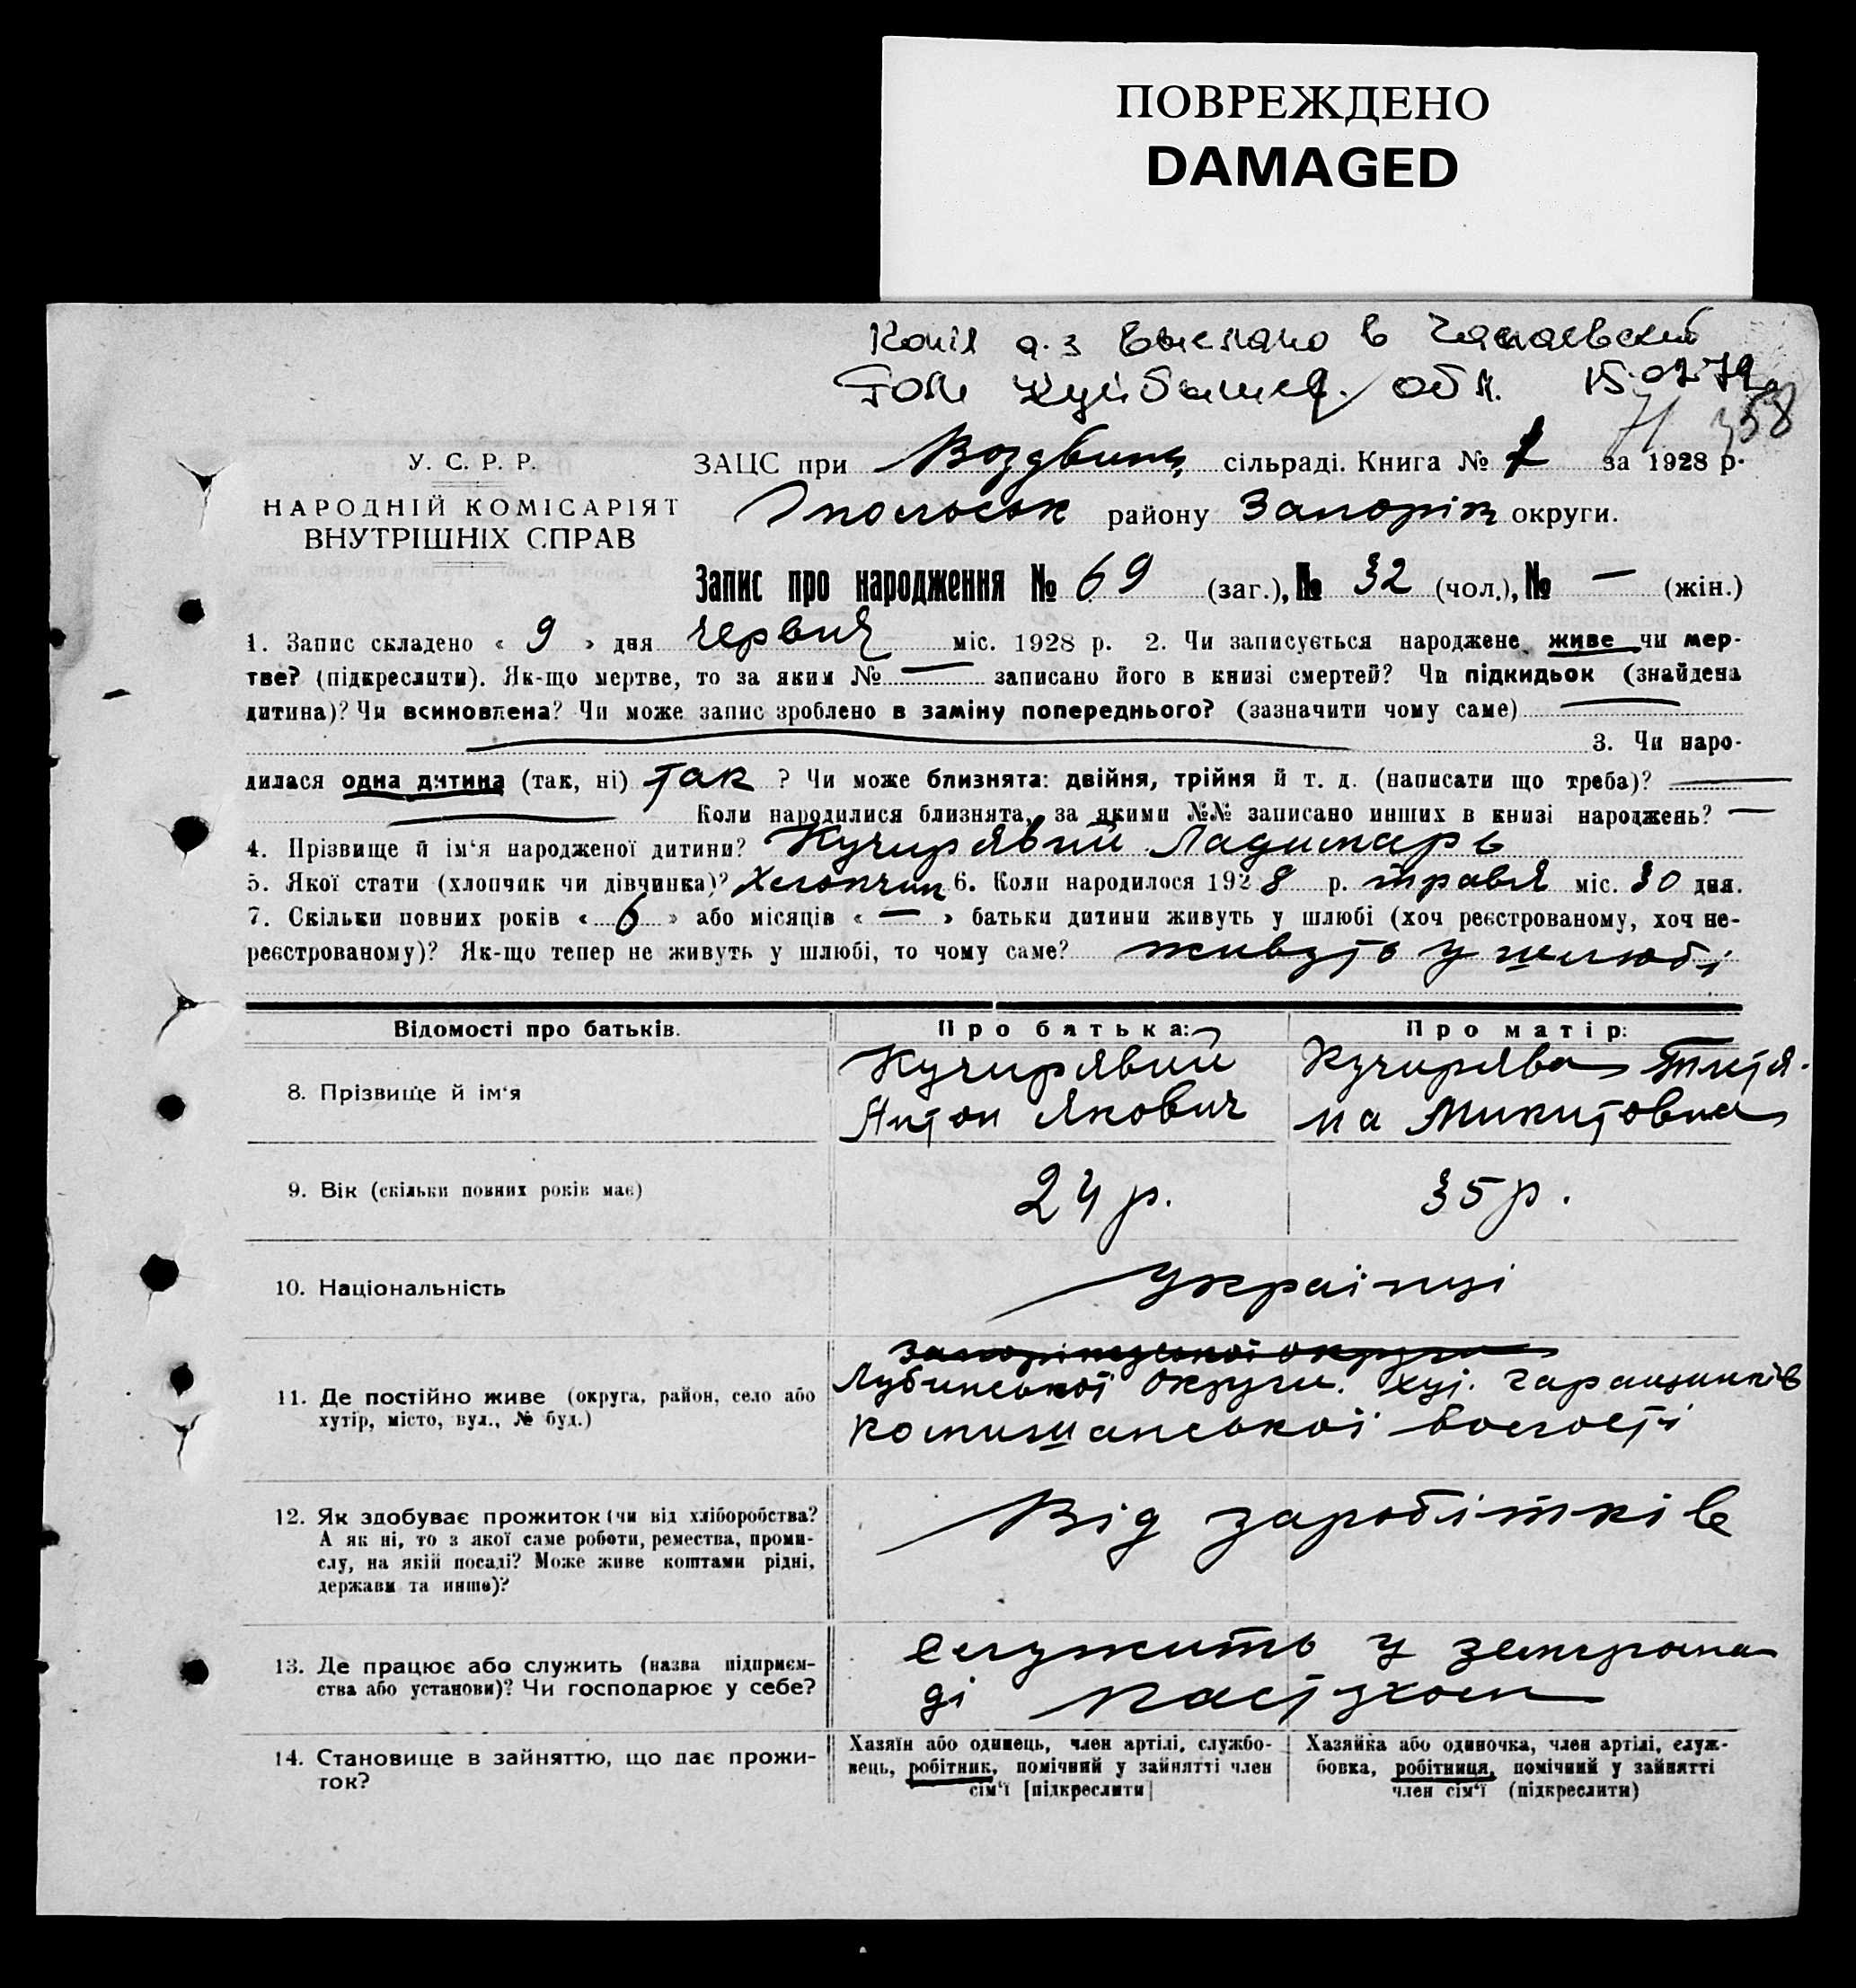 ПОВРЕЖДЕНО
DAMAGED
Копія а.з выслано в Чапаевский
Куйбышев. обл. 15.02.72
71 358
У. С. Р. Р.
НАРОДНІЙ КОМІСАРІЯТ
ВНУТРІШНІХ СПРАВ
ЗАЦС при Воздвиж сільраді. Книга № 1 за 1928 р.
району Запоріж округи.
Запис про народження № 69 (заг.), № 32 (чол.), № — (жін.)
1. Запис складено « 9 » дня червня міс. 1928 р. 2. Чи записується народжене живе чи мер-
тве? (підкреслити). Як-що мертве, то за яким № — записано його в книзі смертей? Чи підкидьок (знайдена
дитина)? Чи всиновлена? Чи може запис зроблено в заміну попереднього? (зазначити чому саме) —
3. Чи наро-
дилася одна дитина (так, ні) Так ? Чи може близнята: двійня, трійня й т. д. (написати що треба)? —
Коли народилися близнята, за якими №№ записано инших в книзі народжень? —
4. Прізвище й ім‘я народженої дитини? Кучирявий Ладимарь
5. Якої стати (хлопчик чи дівчинка)? Хлопчик 6. Коли народилося 1928 р. травня міс. 30 дня.
7. Скільки повних років « 6 » або місяців « — » батьки дитини живуть у шлюбі (хоч реєстрованому, хоч не-
реєстрованому)? Як-що тепер не живуть у шлюбі, то чому саме? живуть у шлюбі
Відомості про батьків. Про батька: Про матір:
8. Прізвище й ім‘я
Кучирявий
Антон Якович
Кучирява Тетя-
на Микитовна
9. Вік (скільки повних років має) 24 р. 35 р.
10. Національність Українці
11. Де постійно живе (округа, район, село або
хутір, місто, вул., № буд.)
Запоріжської округи
Лубинської Округи. хут. Гаращинків
Комишанської волості
12. Як здобуває прожиток (чи від хліборобства?
А як ні, то з якої саме роботи, ремества, проми-
слу, на якій посаді? Може живе коштами рідні,
держави та инше)?
Від заробітків
13. Де працює або служить (назва підприєм-
ства або установи)? Чи господарює у себе?
Служить у земгрома
ді пастухом
14. Становище в зайняттю, що дає прожи-
ток?
Хазяїн або одинець, член артілі, службо-
вець, робітник, помічний у зайнятті член
сім‘ї [підкреслити]
Хазяйка або одиночка, член артілі, служ-
бовка, робітниця, помічний у зайнятті
член сім‘ї (підкреслити)